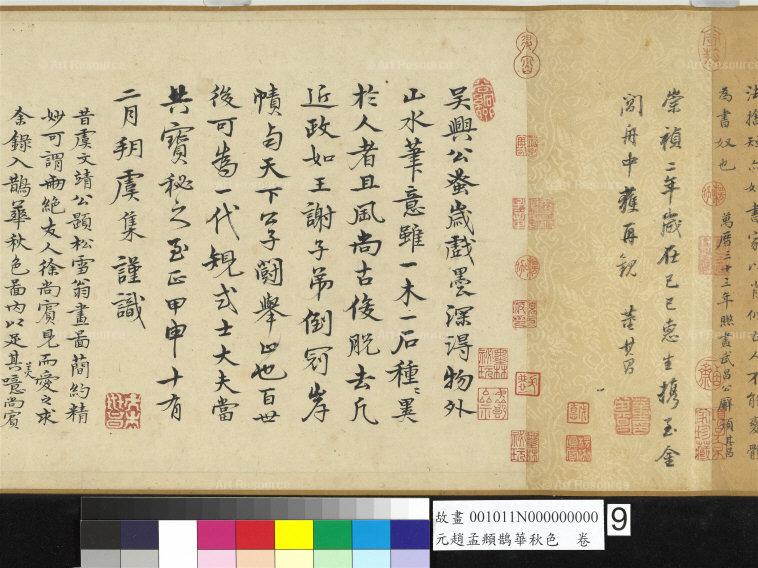 法捨短亦如書家以肖似古人不能變體
為書奴也 萬曆三十三年晒畫武昌公廨題其昌
崇禎二年歲在己巳惠生攜至金
閶舟中獲再觀 董其昌
吳興公蚤歲戲墨深得物外
山水筆意雖一木一石種種異
於人者且風尚古俊脫去凡
近政如王謝子弟倒冠岸
幘与天下公子鬪舉止也百世
後可為一代規式士大夫當
共寶秘之至正甲申十有
二月朔虞集謹識
昔虞文靖公題松雪翁畫圖簡約精
妙可謂兩絕友人徐尚賓見而愛之求
余錄入鵲華秋色圖內以足其美噫尚賓
故畫 001011N000000000
元趙孟頫鵲華秋色 卷
9
Art Resource